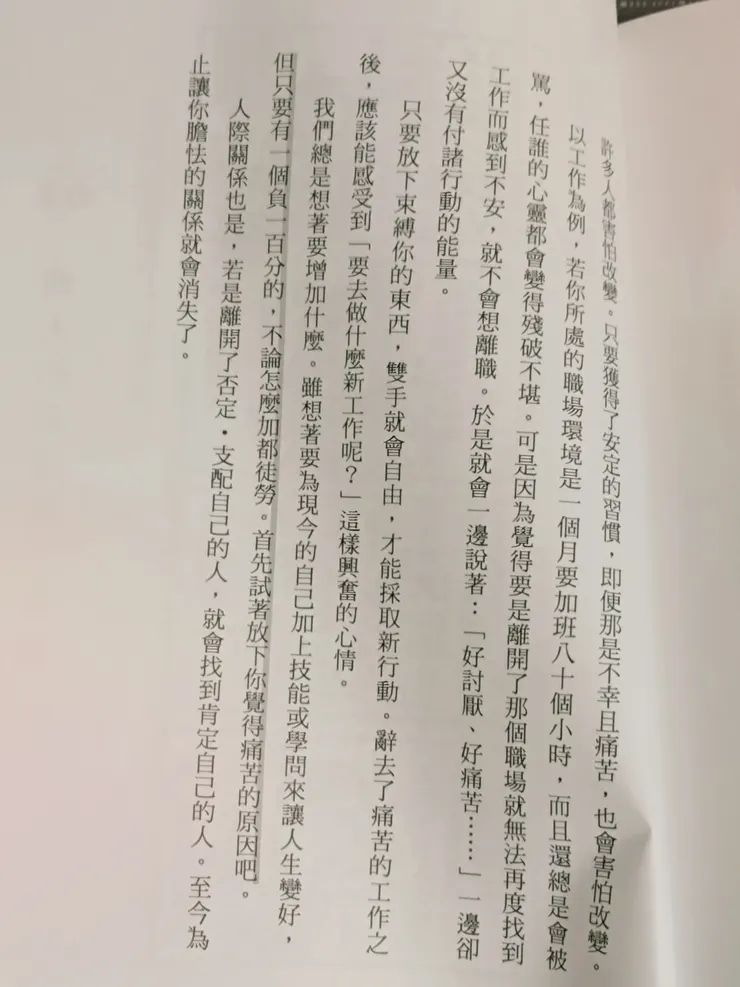 許多人都害怕改變。只要獲得了安定的習慣，即便那是不幸且痛苦，也會害怕改變。
以工作為例，若你所處的職場環境是一個月要加班八十個小時，而且還總是會被
罵，任誰的心靈都會變得殘破不堪。可是因為覺得要是離開了那個職場就無法再度找到
工作而感到不安，就不會想離職。於是就會一邊說著：「好討厭、好痛苦……」一邊卻
又沒有付諸行動的能量。
只要放下束縛你的東西，雙手就會自由，才能採取新行動。辭去了痛苦的工作之
後，應該能感受到「要去做什麼新工作呢？」這樣興奮的心情。
我們總是想著要增加什麼。雖想著要為現今的自己加上技能或學問來讓人生變好，
但只要有一個負一百分的，不論怎麼加都徒勞。首先試著放下你覺得痛苦的原因吧。
人際關係也是，若是離開了否定・支配自己的人，就會找到肯定自己的人。至今為
止讓你膽怯的關係就會消失了。